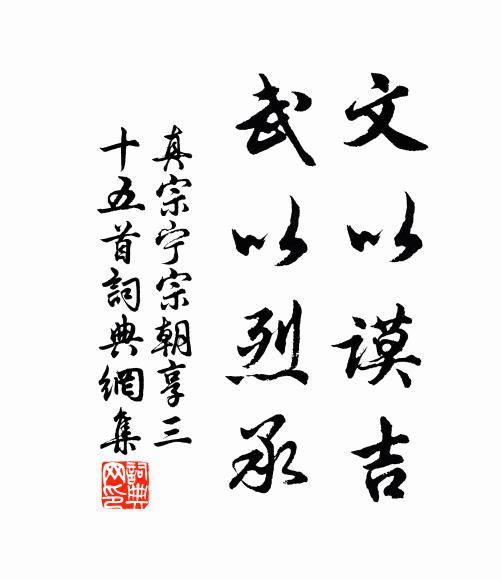 文以谟吉
武以烈承
真宗宁宗朝享三
十五首詞典網集
詞典
网印